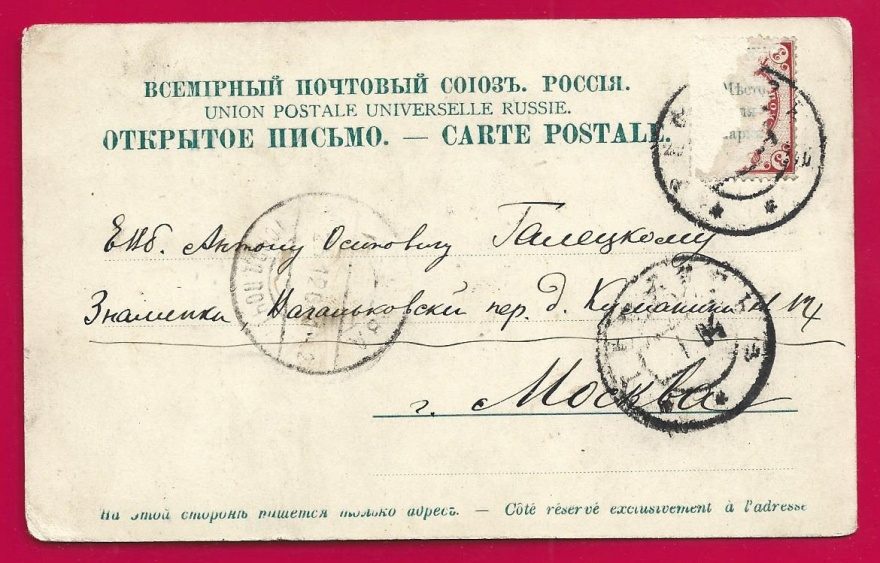 ВСЕМІРНЫЙ ПОЧТОВЫЙ СОЮЗЪ. РОССІЯ.
UNION POSTALE UNIVERSELLE RUSSIE.
ОТКРЫТОЕ ПИСЬМО. — CARTE POSTALE.
Мѣсто
для
марки
ЕВб. Антону Осиповичу Галецкому
Знаменка Ваганьковскій пер. д.
г. Москва
На этой сторонѣ пишется только адресъ. — Côté réservé exclusivement à l'adresse